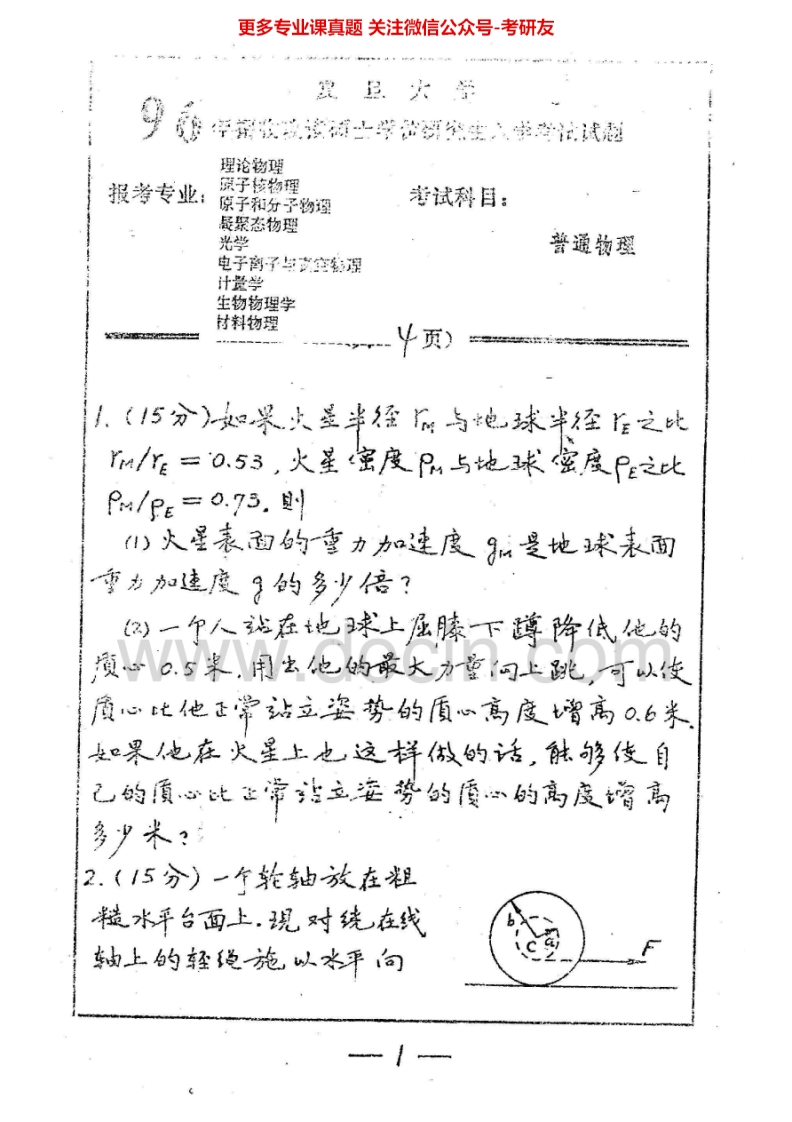 更多专业课真题 关注微信公众号-考研友
复旦大学
96年招收攻读硕士学位研究生入学考试试题
报考专业:
理论物理
原子核物理
原子和分子物理
凝聚态物理
光学
电子离子与真空物理
计量学
生物物理学
材料物理
考试科目:
普通物理
4页)
1.(15分)如果火星半径 rM 与地球半径 rE 之比
rM/rE = 0.53, 火星密度 ρM 与地球密度 ρE 之比
ρM/ρE = 0.73. 则
(1) 火星表面的重力加速度 gM 是地球表面
重力加速度 g 的多少倍?
(2) 一个人站在地球上屈膝下蹲降低他的
质心 0.5 米, 用出他的最大力量向上跳, 可以使
质心比他正常站立姿势的质心高度增高 0.6 米.
如果他在火星上也这样做的话, 能够使自
己的质心比正常站立姿势的质心的高度增高
多少米?
2.(15分) 一个轮轴放在粗
糙水平台面上. 现对绕在线
轴上的轻绳施以水平向
b
C
a
F
www.docin.com
— 1 —